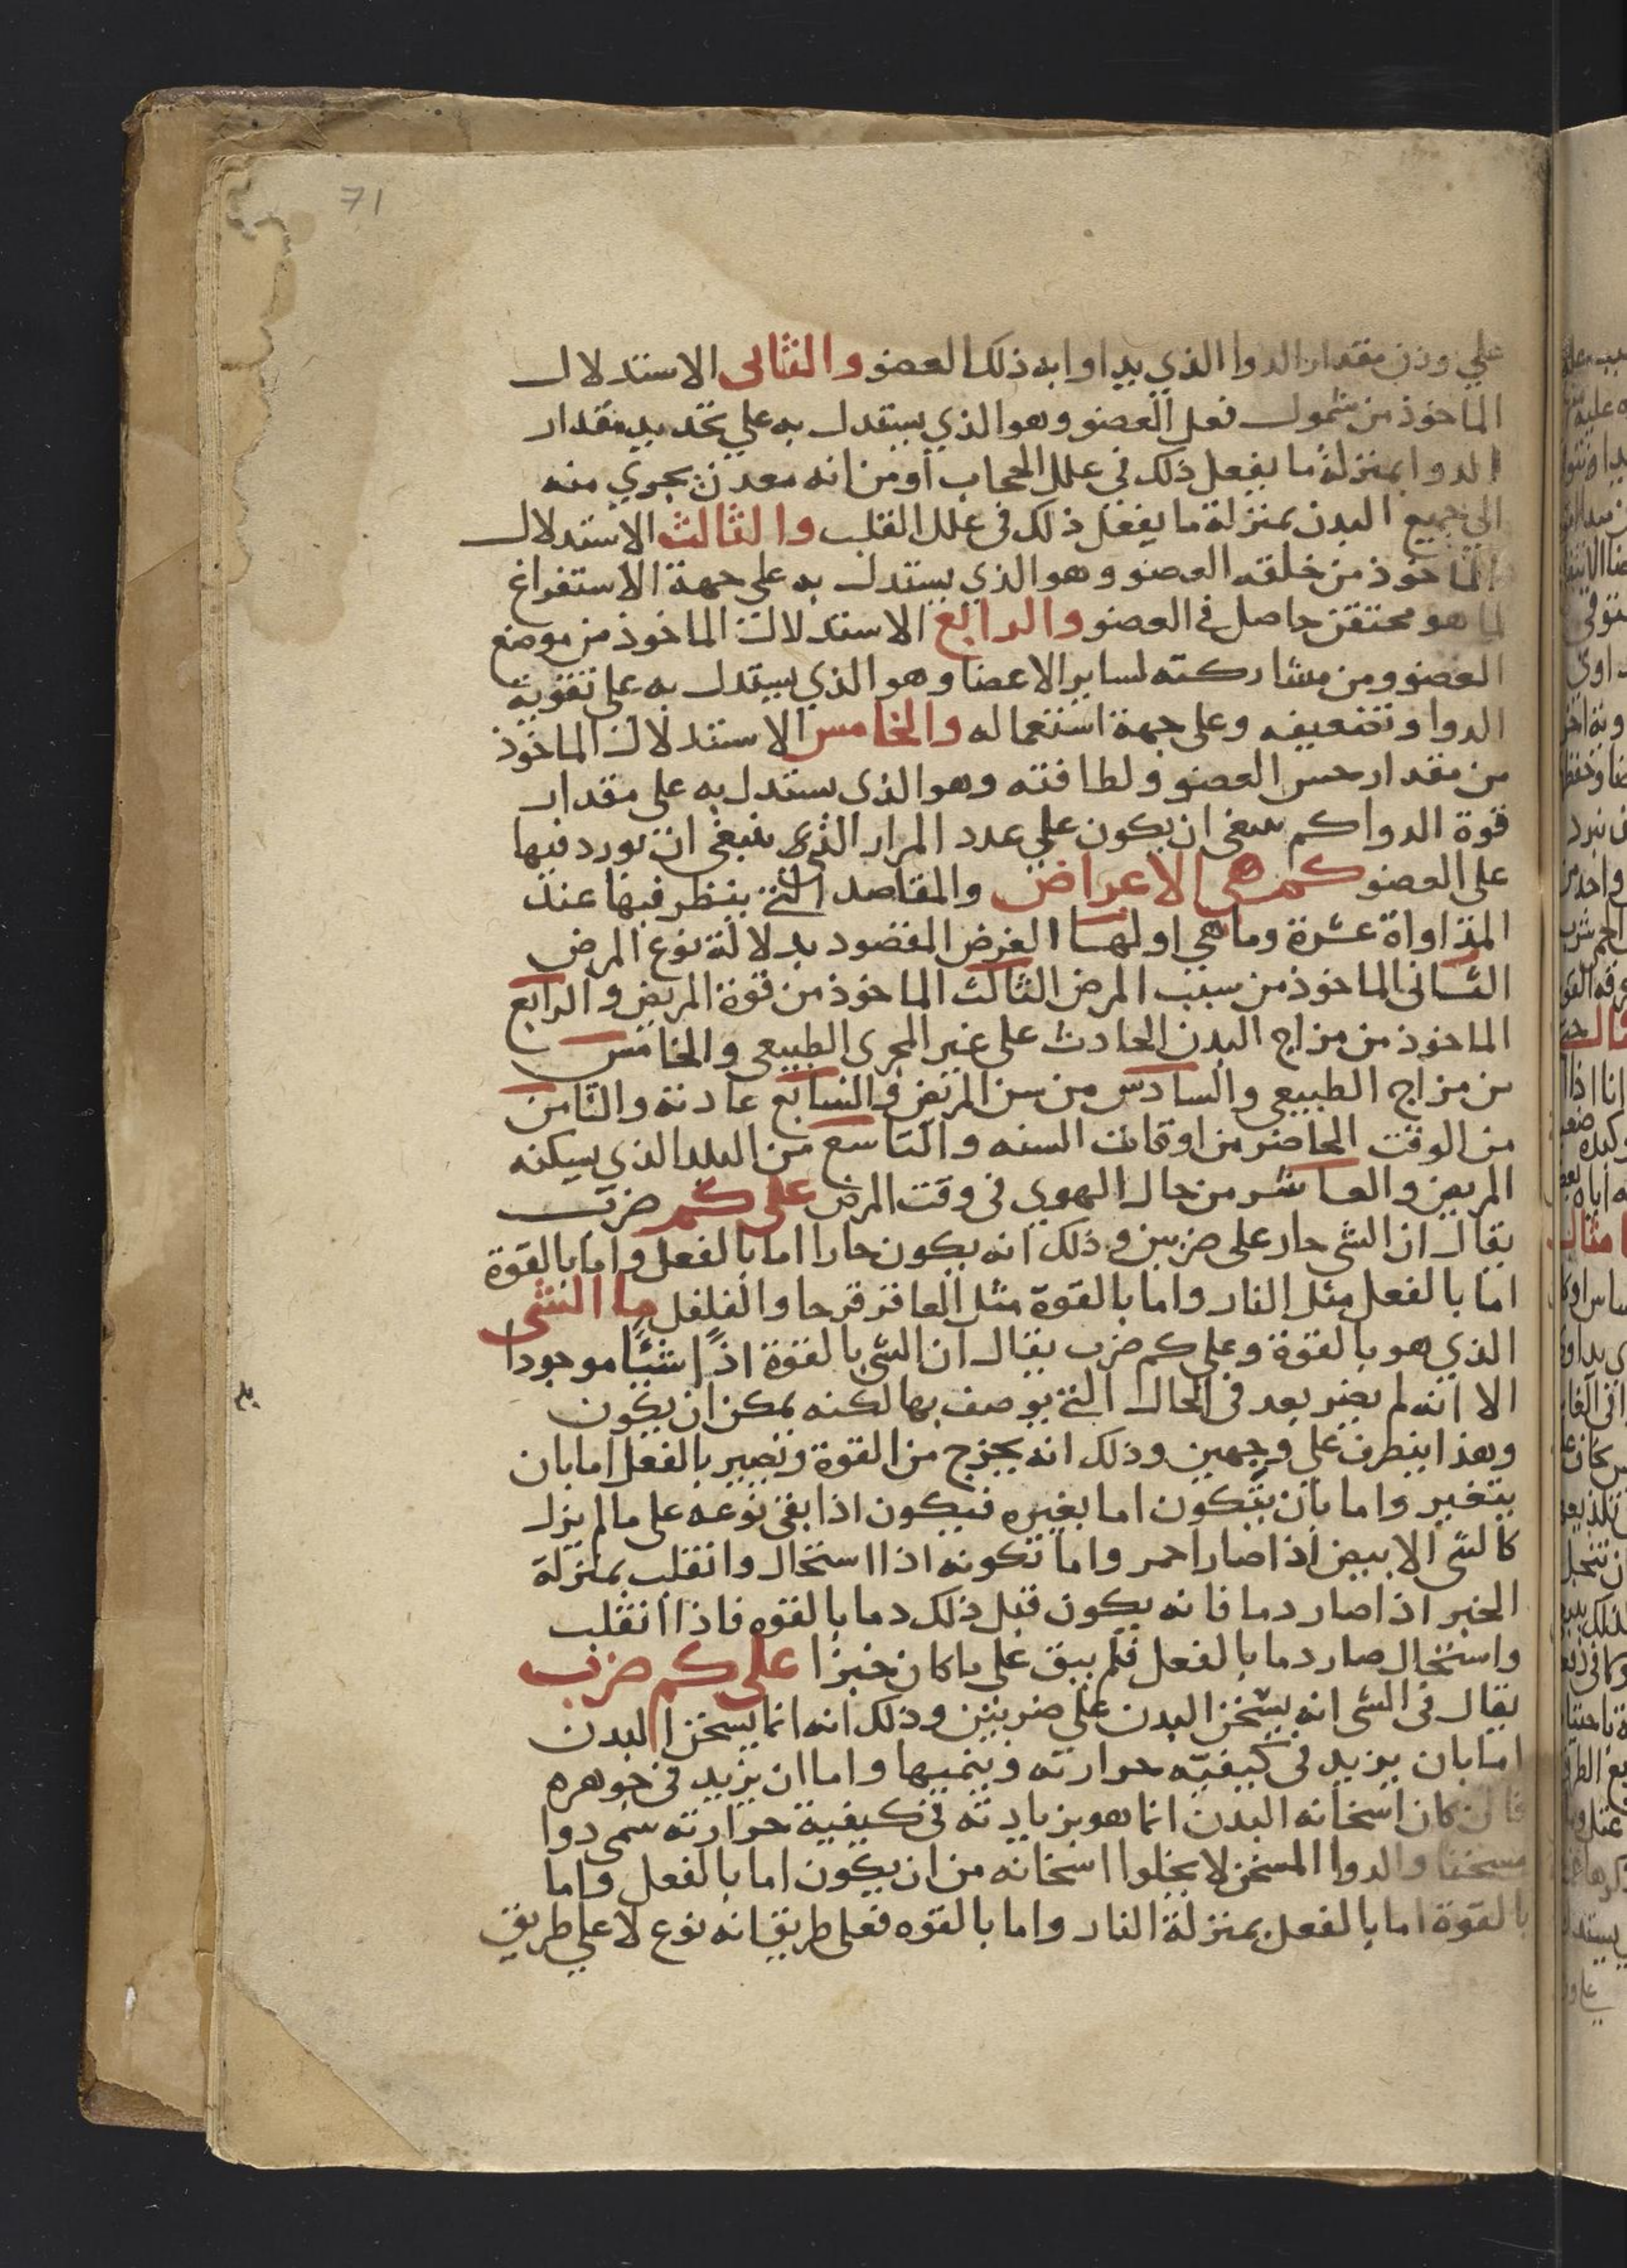 71
علي وزن مقدار الدوا الذي يداوا به ذلك العضو والثاني الاستدلال
الماخوذ من شمول فعل العضو وهو الذي يستدل به علي تحديد مقدار
الدوا بمنزلة ما يفعل ذلك في علل الحجاب او من انه معدن يجري منه
الي جميع البدن بمنزلة ما يفعل ذلك في علل القلب والثالث الاستدلال
الماخوذ من خلقه العضو وهو الذي يستدل به على جهة الاستفراغ
لما هو محتقن حاصل في العضو والرابع الاستدلال الماخوذ من موضع
العضو ومن مشاركته لساير الاعضا وهو الذي يستدل به على تقوية
الدوا وتضعيفه وعلى جهة استعماله والخامس الاستدلال الماخوذ
من مقدار حس العضو ولطافته وهو الذي يستدل به على مقدار
قوة الدوا كم ينبغي ان يكون علي عدد المرار التي ينبغي ان تورد فيها
على العضو كم هي الاعراض والمقاصد التي ينظر فيها عند
المداواة عشرة وما هي اولها الغرض المقصود بدلالة نوع المرض
الثاني الماخوذ من سبب المرض الثالث الماخوذ من قوة المريض والرابع
الماخوذ من مزاج البدن الحادث على غير المجرى الطبيعي والخامس
من مزاج الطبيعي والسادس من سن المريض والسابع عادته والثامن
من الوقت الحاضر من اوقات السنه والتاسع من البلد الذي يسكنه
المريض والعاشر من حال الهوي في وقت المرض على كم ضرب
يقال ان الشي حار على ضربين وذلك انه يكون حارا اما بالفعل واما بالقوة
اما بالفعل مثل النار واما بالقوة مثل العاقر قرحا والفلفل ما الشي
الذي هو بالقوة وعلى كم ضرب يقال ان الشي بالقوة اذا شيئا موجودا
الا انه لم يصير بعد في الحال التي يوصف بها لكنه يمكن ان يكون
وهذا ينطرف على وجهين وذلك انه يخرج من القوة وتصير بالفعل اما بان
يتغير واما بان يتكون اما بغيره فيكون اذا بقى نوعه على ما لم يزل
كالشي الابيض اذا صار احمر واما تكونه اذا استحال وانقلب بمنزلة
الخبز اذا صار دما فانه يكون قبل ذلك دما بالقوه فاذا انقلب
واستحال صار دما بالفعل فلم يبق على ما كان خبزا على كم ضرب
يقال في الشي انه يسخن البدن على ضربين وذلك انه انما يسخن البدن
اما بان يزيد في كيفيه حرارته وينميها واما ان يزيد في جوهره
فان كان اسخانه البدن انما هو بزيادته في كيفية حرارته سمي دوا
مسخنا والدوا المسخن لا يخلوا اسخانه من ان يكون اما بالفعل واما
بالقوة اما بالفعل بمنزلة النار واما بالقوه فعلى طريق انه نوع لا على طريق